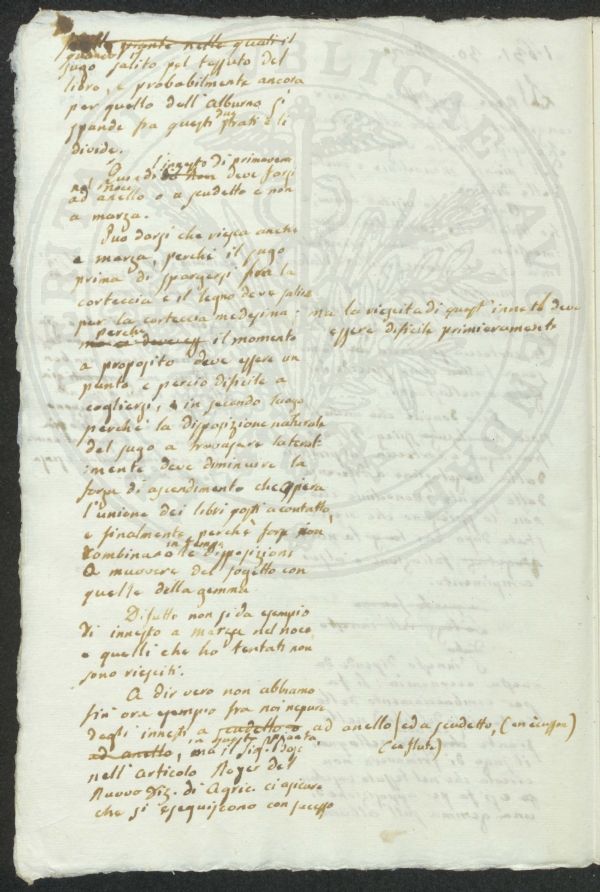 piante nelle quali il
sugo salito pel tessuto del
libro, e probabilmente ancora
per quello dell'Alburno si
spande fra questi due strati e li
divide.
Quindi l'innesto di primavera
nel noce deve farsi
ad anello o a scudetto e non
a marza.
Puo darsi che riesca anche
a marza, perchè il sugo
prima di spargersi fra la
corteccia e il legno deve salire
per la corteccia medesima: ma la riescita di quest'innesto deve
essere dificile primieramente
perchè il momento
a proposito deve essere un
punto e perciò dificile a
cogliersi, in secondo luogo
perchè la disposizione naturale
del sugo a travasare lateral
:mente deve diminuire la
forza di ascendimento che opera
l'unione dei libri posti a contatto,
e finalmente perchè forse non
combinano in tempo le disposizioni
a muovere del sogetto con
quelle della gemma.
Difatto non si da esempio
di innesto a marza nel noce,
e quelli che ho tentati non
sono riesciti.
A dir vero non abbiamo
fin'ora esempio fra noi nepure
degli innesti a scudetto o ad anello ed a scudetto, (en écusson)
ad anello, in questa pianta, ma il Sig.
(en flute)
nell'Articolo Noyer del
Nuovo Diz. di Agric. ci assicura
che si eseguiscono con sucesso